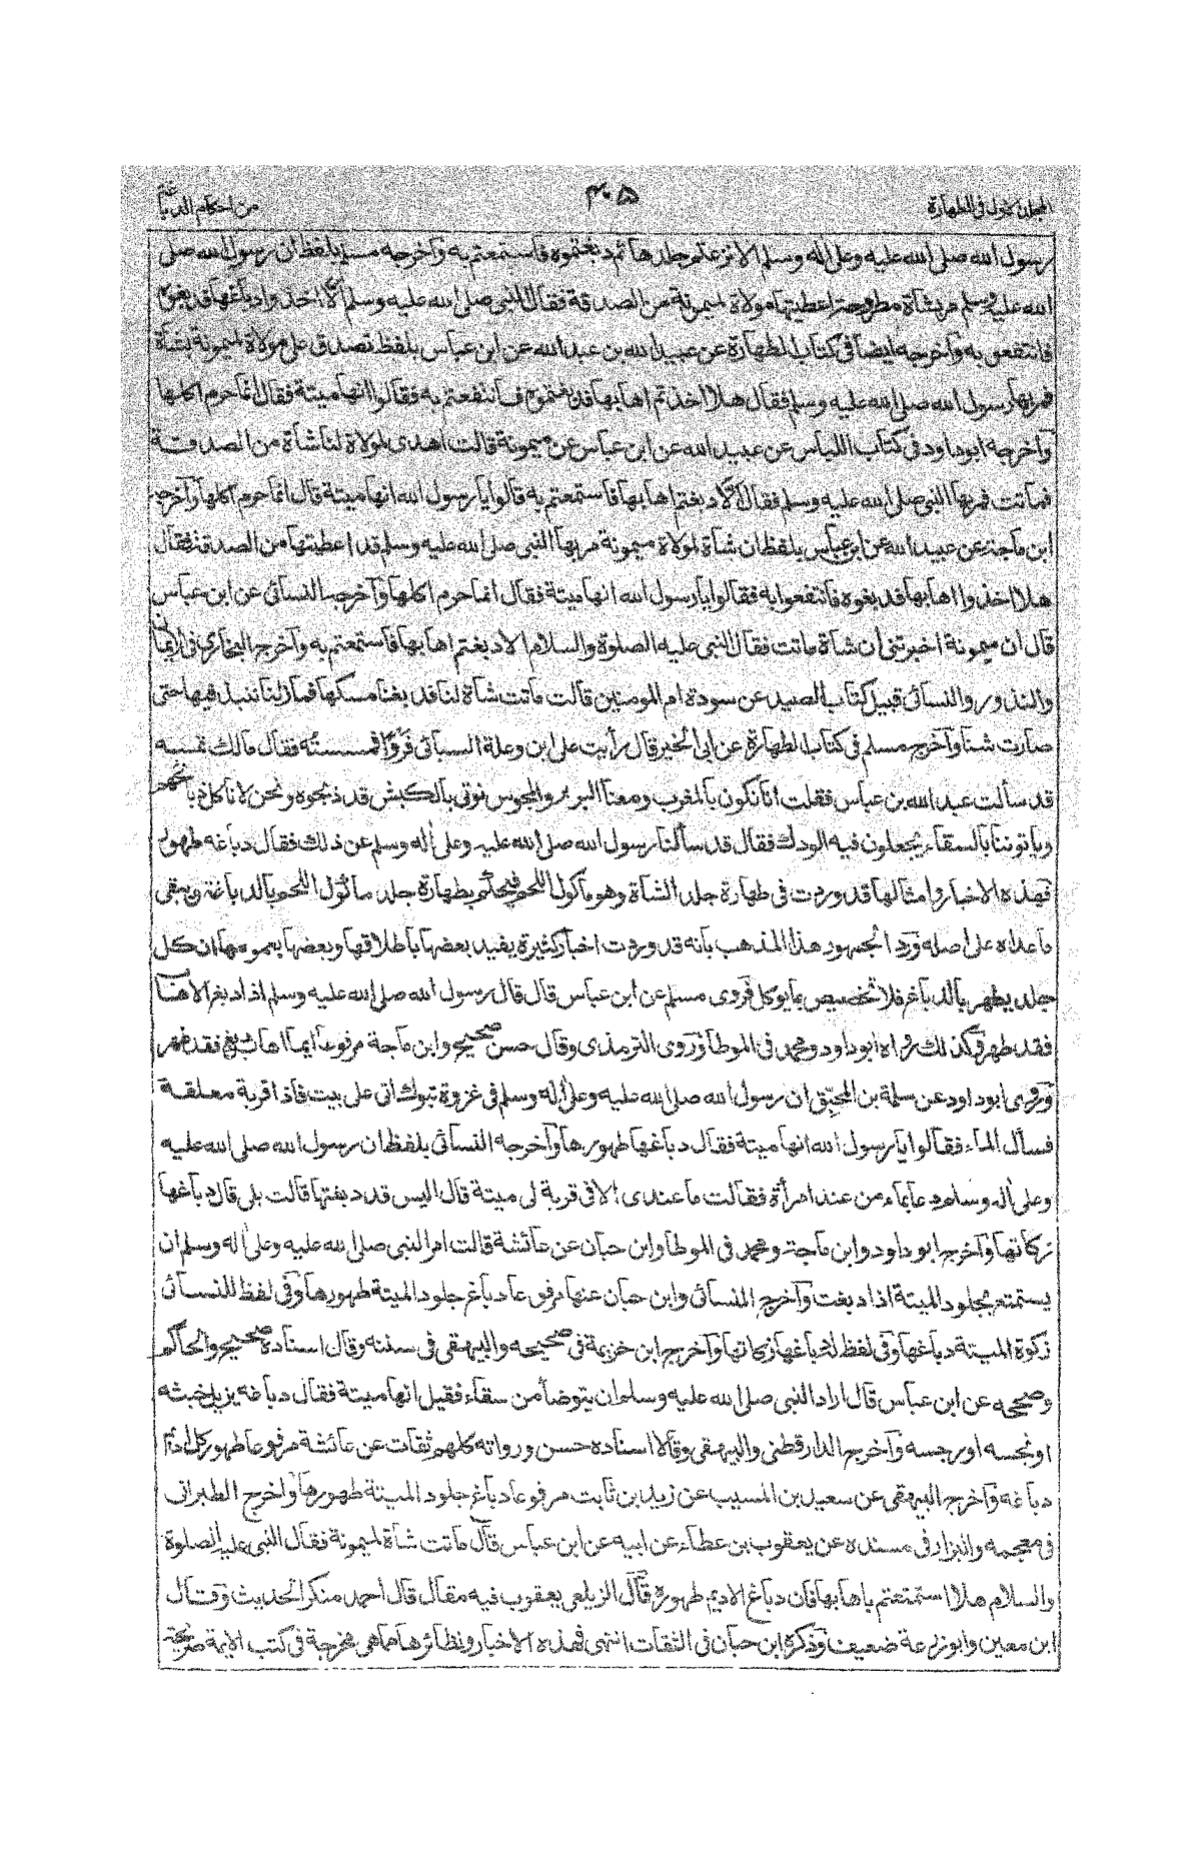 المجلد الاول في الطهارة
٤٠٥
من احكام الدباغة
رسول الله صلى الله عليه وعلى اله وسلم الا نزعتم جلدها ثم دبغتموه فاستمتعتم به وآخرجه مسلم بلفظ ان رسول الله صلى
الله عليه وسلم مر بشاة مطروحة اعطيتها مولاة لميمونة من الصدقة فقال النبي صلى الله عليه وسلم ألا اخذوا دباغها فدبغوه
فانتفعوا به وآخرجه ايضا في كتاب الطهارة عن عبيد الله بن عبد الله عن ابن عباس بلفظ تصدق على مولاة لميمونة بشاة
فمر بها رسول الله صلى الله عليه وسلم فقال هلا اخذتم اهابها فدبغتموه فانتفعتم به فقالوا انها ميتة فقال انما حرم اكلها
وآخرجه ابو داود في كتاب اللباس عن عبيد الله عن ابن عباس عن ميمونة قالت اهدى لمولاة لنا شاة من الصدقة
فماتت فمر بها النبي صلى الله عليه وسلم فقال الا دبغتم اهابها فاستمتعتم به قالوا يا رسول الله انها ميتة قال انما حرم اكلها وآخرجه
ابن ماجة عن عبيد الله عن ابن عباس بلفظ ان شاة لمولاة ميمونة مر بها النبي صلى الله عليه وسلم قد اعطيتها من الصدقة فقال
هلا اخذوا اهابها فدبغوه فانتفعوا به فقالوا يا رسول الله انها ميتة فقال انما حرم اكلها وآخرجه النسائي عن ابن عباس
قال ان ميمونة اخبرتني ان شاة ماتت فقال النبي عليه الصلوة والسلام الا دبغتم اهابها فاستمتعتم به وآخرج البخاري في الايمان
والنذور والنسائي قبيل كتاب الصيد عن سودة ام المومنين قالت ماتت شاة لنا فدبغنا مسكها فما زلنا ننبذ فيها حتى
صارت شنا وآخرج مسلم في كتاب الطهارة عن ابى الخير قال رأيت على ابن وعلة السبائي فروا فمسسته فقال مالك تمسه
قد سألت عبد الله بن عباس فقلت انا نكون بالمغرب ومعنا البربر والمجوس نوتى بالكبش قد ذبحوه ونحن لا ناكل ذبائحهم
وياتوننا بالسقاء يجعلون فيه الودك فقال قد سألنا رسول الله صلى الله عليه وعلى اله وسلم عن ذلك فقال دباغه طهوره
فهذه الاخبار وامثالها قد وردت في طهارة جلد الشاة وهو ماكول اللحم فيحكم بطهارة جلد ماكول اللحم بالدباغة ويبقى
ما عداه على اصله ورد الجمهور هذا المذهب بأنه قد وردت اخبار كثيرة يفيد بعضها باطلاقها وبعضها بعمومها ان كل
جلد يطهر بالدباغ فلا تخصيص بما يوكل فروى مسلم عن ابن عباس قال قال رسول الله صلى الله عليه وسلم اذا دبغ الاهاب
فقد طهر وكذلك رواه ابو داود ومحمد في الموطا وروى الترمذى وقال حسن صحيح وابن ماجة مرفوعا ايما اهاب دبغ فقد طهر
وروى ابو داود عن سلمة بن المحبق ان رسول الله صلى الله عليه وعلى اله وسلم في غزوة تبوك اتى على بيت فاذا قربة معلقة
فسأل الماء فقالوا يا رسول الله انها ميتة فقال دباغها طهورها وآخرجه النسائي بلفظ ان رسول الله صلى الله عليه
وعلى اله وسلم دعا بماء من عند امرأة فقالت ما عندى الا في قربة لى ميتة قال اليس قد دبغتها قالت بلى قال دباغها
زكاتها وآخرج ابو داود وابن ماجة ومحمد في الموطا وابن حبان عن عائشة قالت امر النبي صلى الله عليه وعلى اله وسلم ان
يستمتع بجلود الميتة اذا دبغت وآخرج النسائي وابن حبان عنها مرفوعا دباغ جلود الميتة طهورها وفي لفظ للنسائي
زكوة الميتة دباغها وفي لفظ له دباغها زكاتها وآخرج ابن خزيمة في صحيحه والبيهقى في سننه وقال اسناده صحيح والحاكم
وصححه عن ابن عباس قال اراد النبي صلى الله عليه وسلم ان يتوضأ من سقاء فقيل انها ميتة فقال دباغه يزيل خبثه
او نجسه او رجسه وآخرج الدارقطنى والبيهقى وقالا اسناده حسن ورواته كلهم ثقات عن عائشة مرفوعا طهور كل اديم
دباغه وآخرج البيهقى عن سعيد بن المسيب عن زيد بن ثابت مرفوعا دباغ جلود الميتة طهورها وآخرج الطبرانى
في معجمه والبزار في مسنده عن يعقوب بن عطاء عن ابيه عن ابن عباس قال ماتت شاة لميمونة فقال النبي عليه الصلوة
والسلام هلا استمتعتم باهابها فان دباغ الاديم طهوره قال الزيلعى يعقوب فيه مقال قال احمد منكر الحديث وقال
ابن معين وابو زرعة ضعيف وذكره ابن حبان في الثقات انتهى فهذه الاخبار ونظائرها مما هى مخرجة في كتب الايمة صريحة